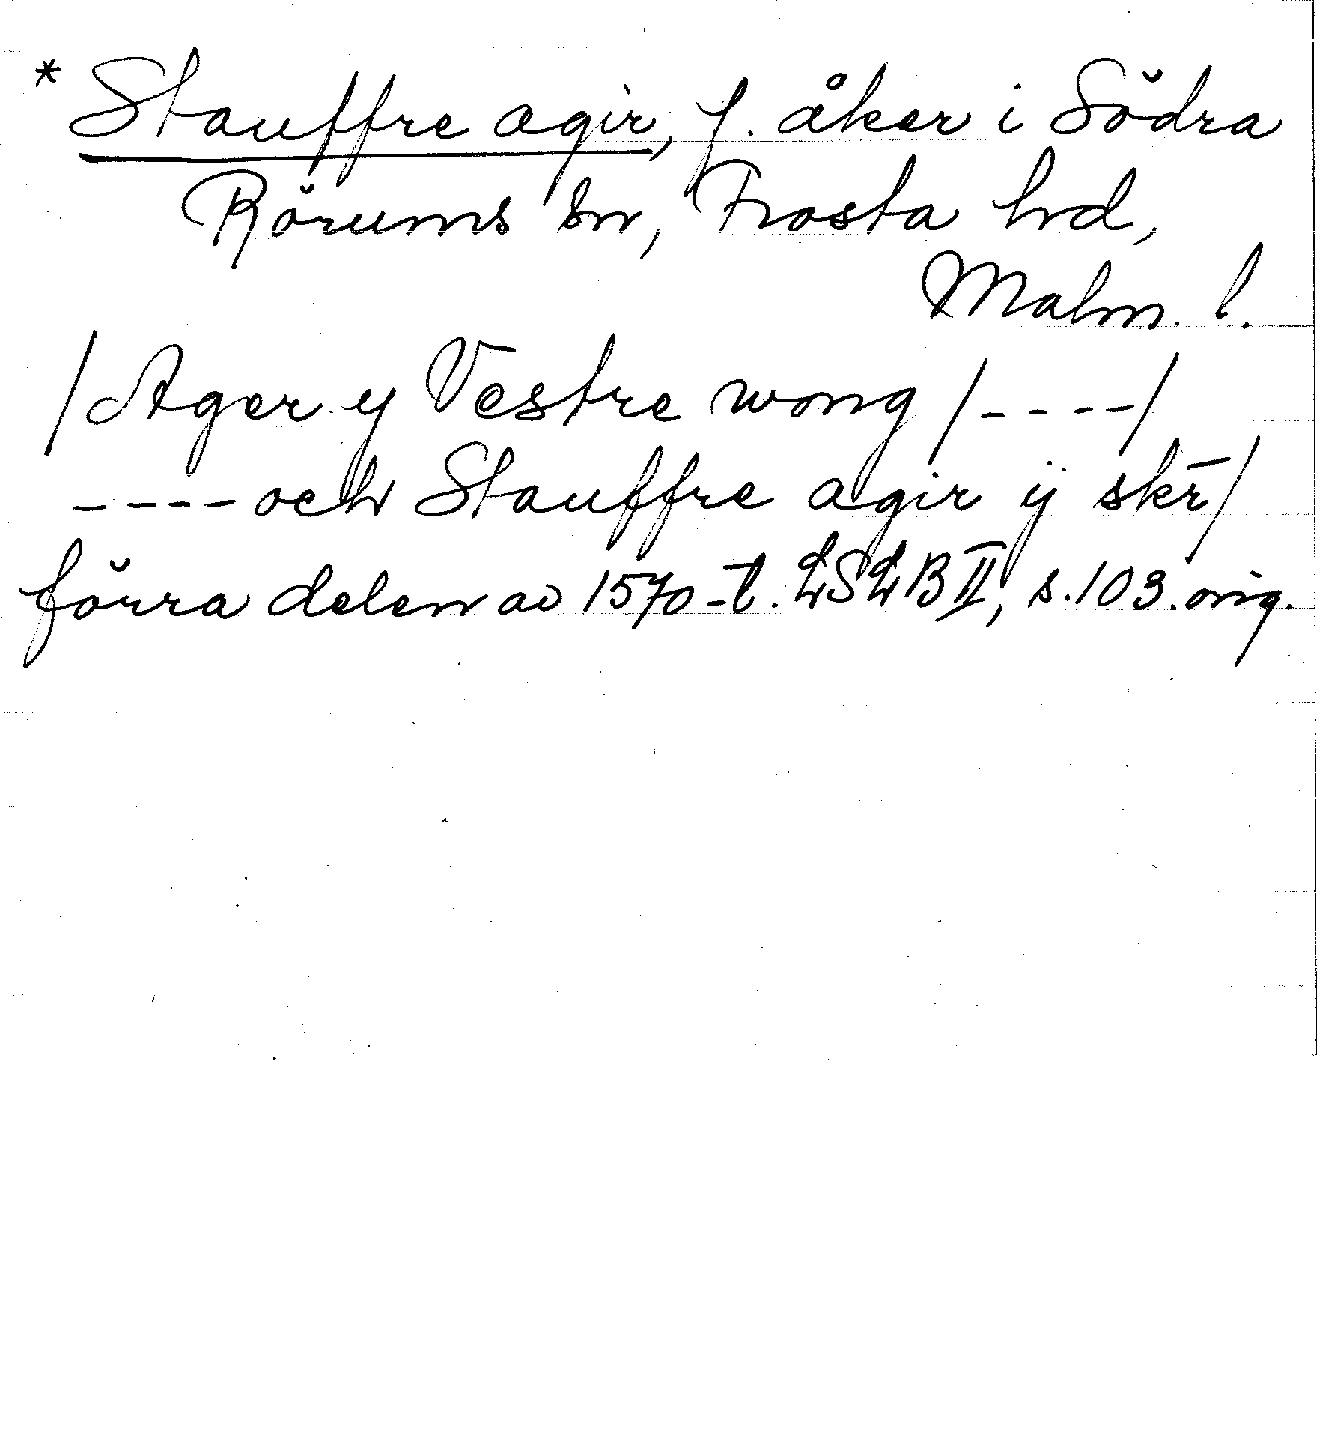 * Stauffre agir, f. åker i Södra
Rörums sn, Frosta hd,
Malm. l.
/Ager y Vestre wong /----/
---- och Stauffre agir ÿ skr̄/
förra delen av 1570-t. LSLB II, s. 103. orig.